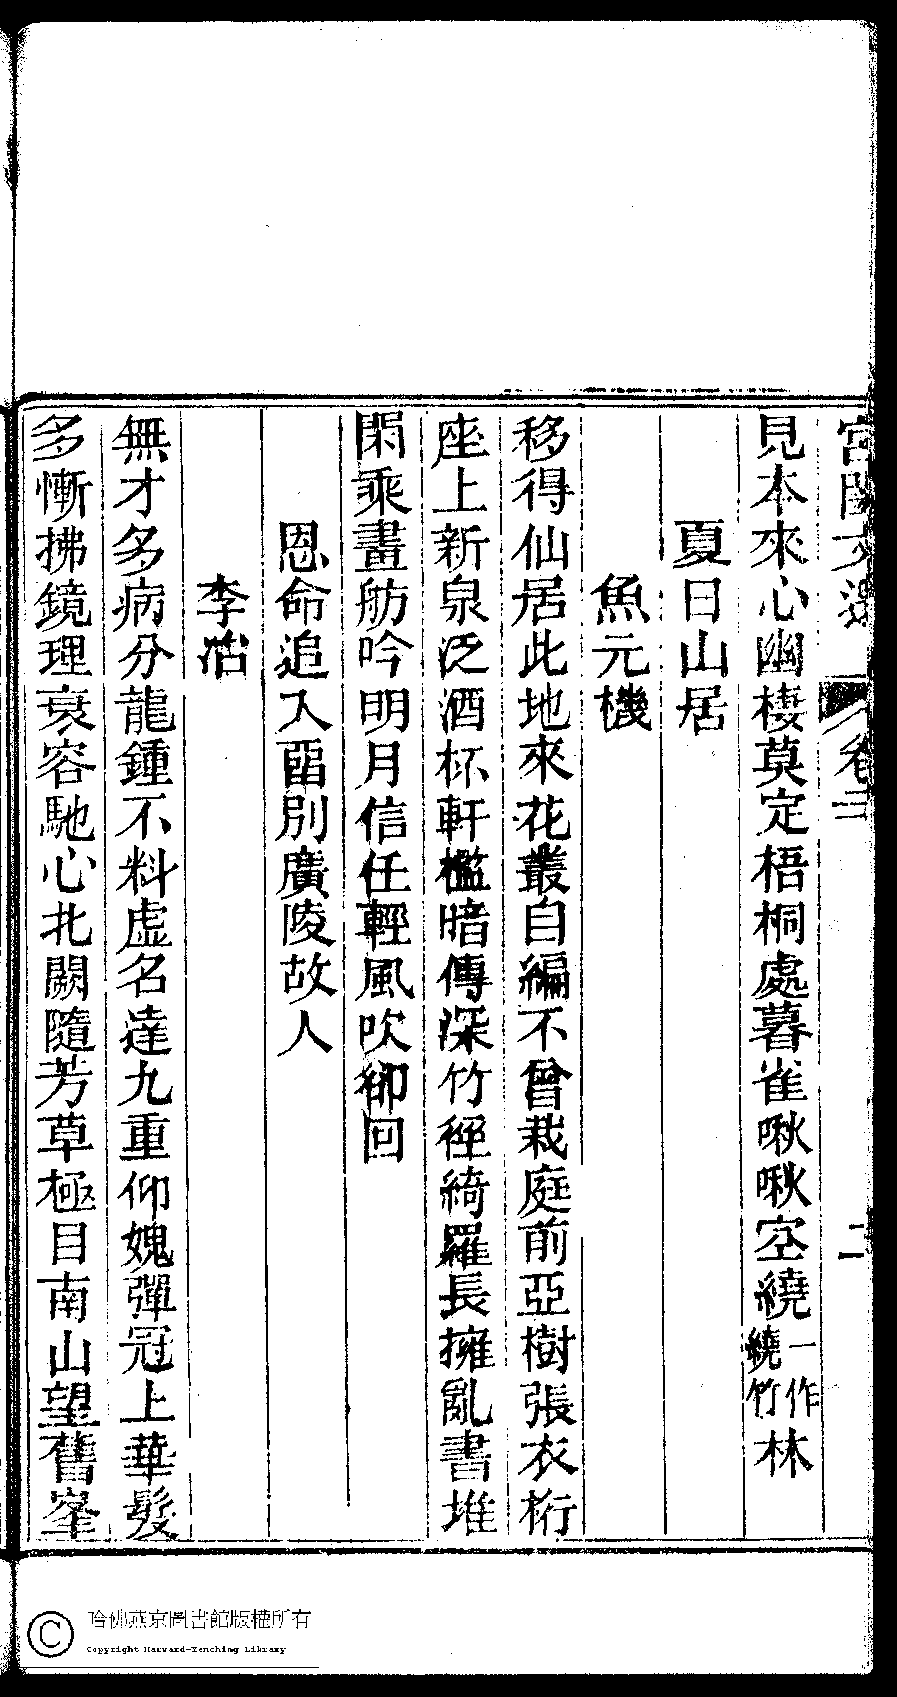 宮閨文選 卷三 二
見本來心幽棲莫定梧桐處暮雀啾啾空繞一作繞竹林
夏日山居
魚元機
移得仙居此地來花叢自編不曾栽庭前亞樹張衣桁
座上新泉泛酒杯軒檻暗傳深竹徑綺羅長擁亂書堆
閑乘畫舫吟明月信任輕風吹卻回
恩命追入留別廣陵故人
李冶
無才多病分龍鍾不料虛名達九重仰媿彈冠上華髮
多慚拂鏡理衰容馳心北闕隨芳草極目南山望舊峯
哈佛燕京圖書館版權所有
Copyright Harvard-Yenching Library